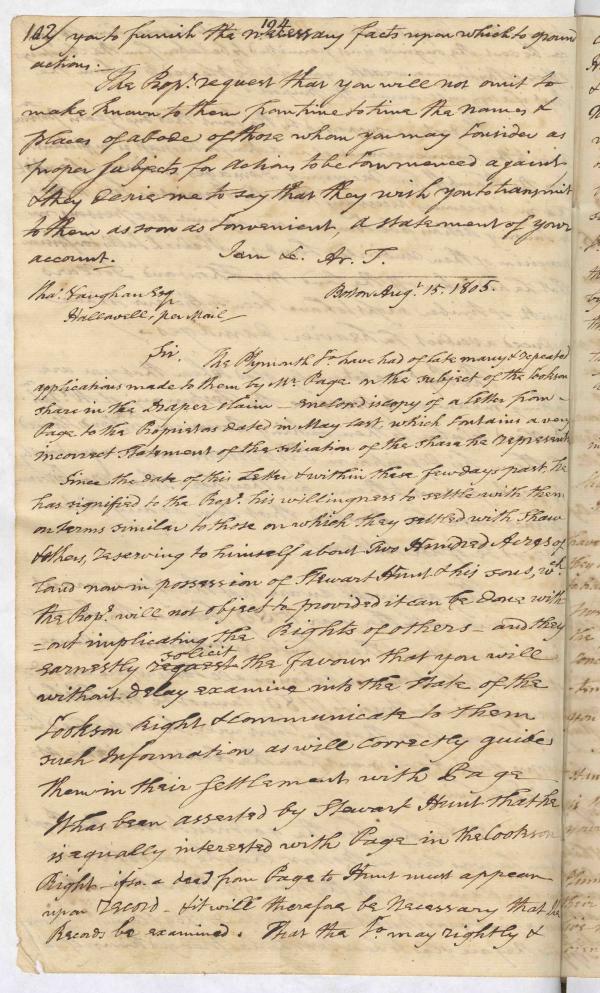 142/ 194
you to furnish the necessary facts upon which to ground
actions.
The Proprs. request that you will not omit to
make known to them from time to time the names &
places of abode of those whom you may Consider as
proper subjects for actions to be Commenced against
& they desire me to say that they wish you to transmit
to them as soon as Convenient, a statement of your
account. I am &c. Ar. T.
Boston Augt. 15. 1805.
Thos. Vaughan Esq
Hallowell, per Mail
Sir. The Plymouth Co. have had of late many & repeated
applications made to them by Mr Page on the subject of the Cookson
share in the Draper claim – enclosed is copy of a letter from –
Page to the Proprietors dated in May last which Contains a very
incorrect statement of the situation of the share he represents
Since the date of this Letter & within these few days past, he
has signified to the Proprs. his willingness to settle with them
on terms similar to those on which they settled with Shaw
& others, reserving to himself about Two Hundred Acres of
Land now in possession of Stewart Hunt & his sons, wch.
the Proprs. will not object to provided it can be done with-
=out implicating the Rights of others – and they
earnestly request solicit the favour that you will
without delay examine into the State of the
Cookson Right & Communicate to them
such Information as will correctly guide
them in their settlement with Page
It has been asserted by Stewart Hunt that he
is equally interested with Page in the Cookson
Right – if so. a deed from Page to Hunt must appear
upon record – & it will therefore be necessary that the
Records be examined. That the Co. may rightly &